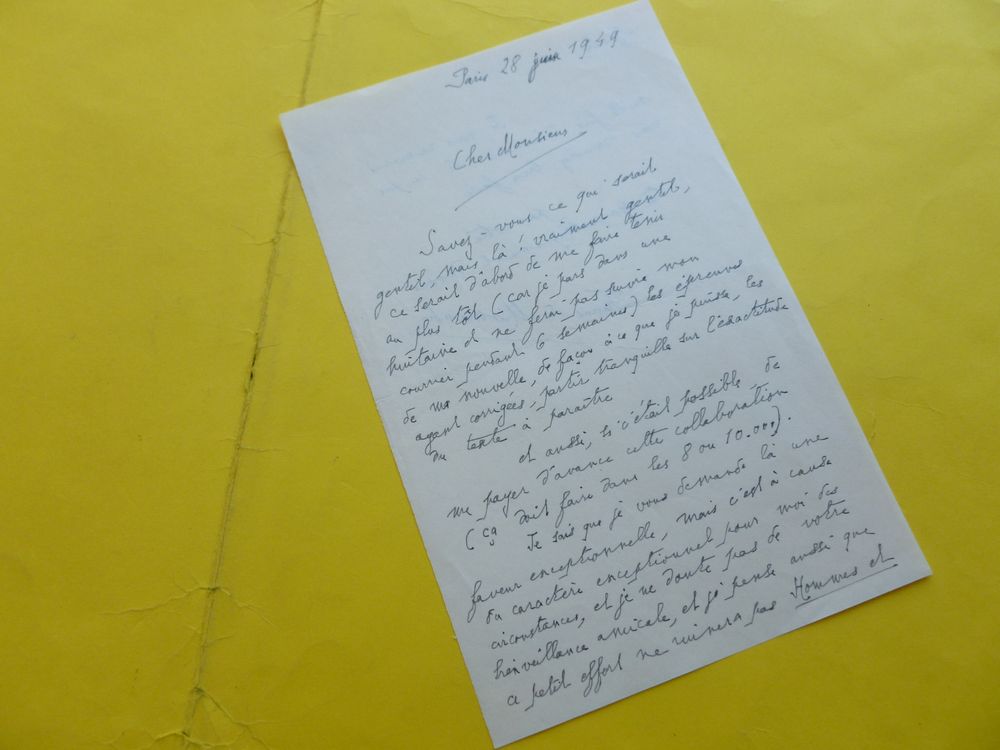 Paris 28 juin 1949
Cher Monsieur
Savez-vous ce qui serait
gentil, mais là ! vraiment gentil,
ce serait d'abord de me faire tenir
au plus tôt (car je pars dans une
huitaine et ne ferai pas suivre mon
courrier pendant 6 semaines) les épreuves
de ma nouvelle, de façon à ce que je puisse, les
ayant corrigées, partir tranquille sur l'exactitude
du texte à paraître
et aussi, si c'était possible, de
me payer d'avance cette collaboration
(ça doit faire dans les 8 ou 10.000).
Je sais que je vous demande là une
faveur exceptionnelle, mais c'est à cause
du caractère exceptionnel pour moi des
circonstances, et je ne doute pas de votre
bienveillance amicale, et je pense aussi que
ce petit effort ne ruinera pas Hommes et